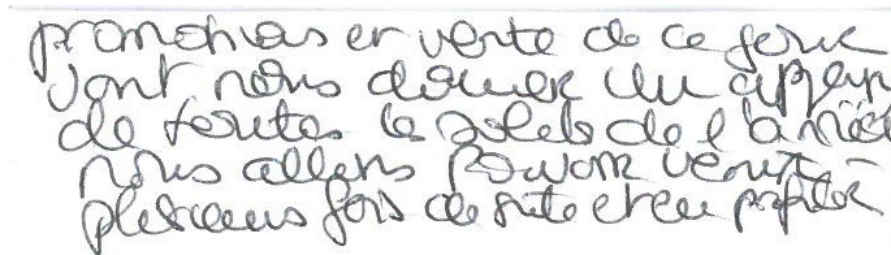 promotions et vente de ce genre
vont nous donner un apperç
de toutes le soldes de l'année
nous allons pouvoir venir
plusieurs fois de suite et en profiter